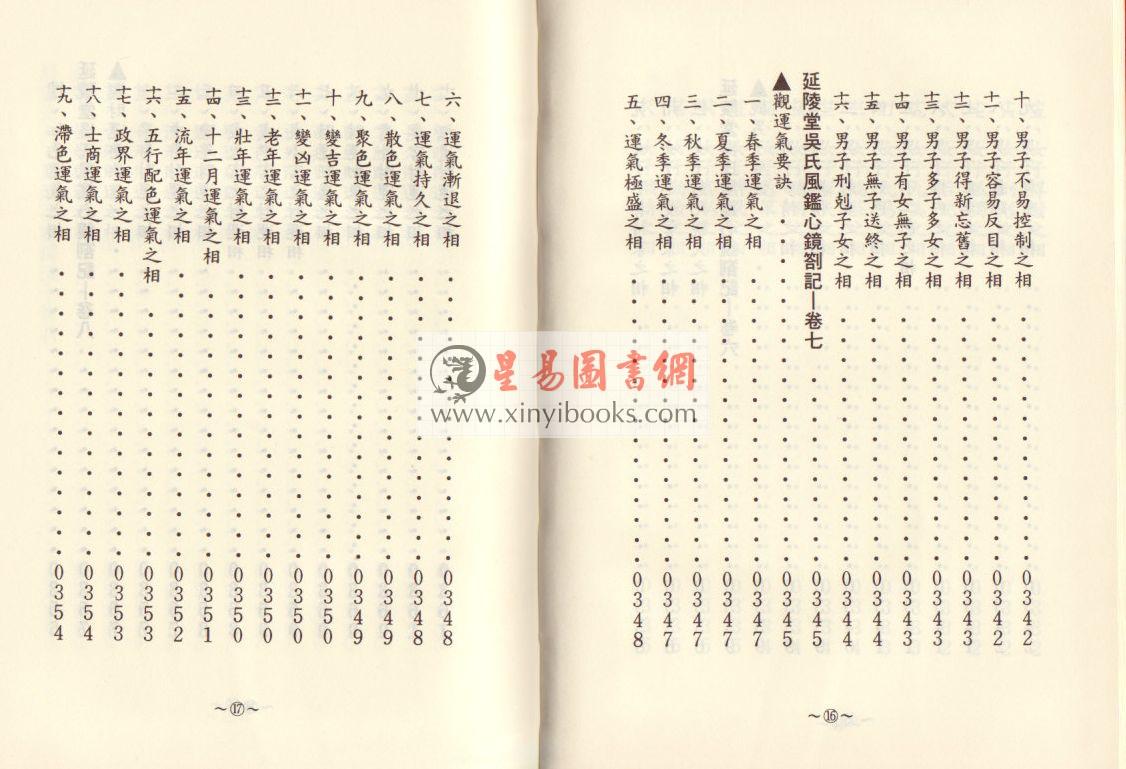 十、男子不易控制之相・・・・・・・・・・0342
十一、男子容易反目之相・・・・・・・・・・0342
十二、男子得新忘舊之相・・・・・・・・・・0343
十三、男子多子多女之相・・・・・・・・・・0343
十四、男子有女無子之相・・・・・・・・・・0343
十五、男子無子送終之相・・・・・・・・・・0344
十六、男子刑剋子女之相・・・・・・・・・・0344
延陵堂吳氏風鑑心鏡劄記—卷七・・・・・・・・0345
▲觀運氣要訣・・・・・・・・・・・・・0345
一、春季運氣之相・・・・・・・・・・・0347
二、夏季運氣之相・・・・・・・・・・・0347
三、秋季運氣之相・・・・・・・・・・・0347
四、冬季運氣之相・・・・・・・・・・・0347
五、運氣極盛之相・・・・・・・・・・・0348
~⑯~
六、運氣漸退之相・・・・・・・・・・・0348
七、運氣持久之相・・・・・・・・・・・0348
八、散色運氣之相・・・・・・・・・・・0349
九、聚色運氣之相・・・・・・・・・・・0349
十、變吉運氣之相・・・・・・・・・・・0350
十一、變凶運氣之相・・・・・・・・・・・0350
十二、老年運氣之相・・・・・・・・・・・0350
十三、壯年運氣之相・・・・・・・・・・・0350
十四、十二月運氣之相・・・・・・・・・・0351
十五、流年運氣之相・・・・・・・・・・・0352
十六、五行配色運氣之相・・・・・・・・・・0353
十七、政界運氣之相・・・・・・・・・・・0353
十八、士商運氣之相・・・・・・・・・・・0354
十九、滯色運氣之相・・・・・・・・・・・0354
~⑰~
星易圖書網
www.xinyibooks.com